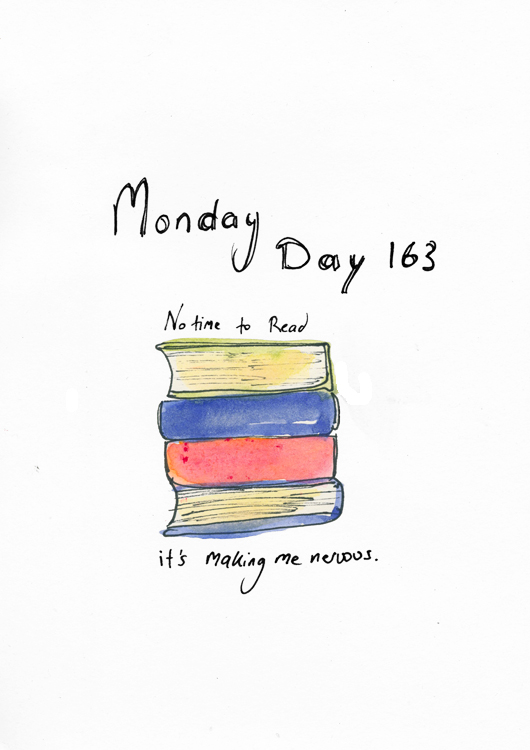 Monday
Day 163
No time to Read
it's making me nervous.